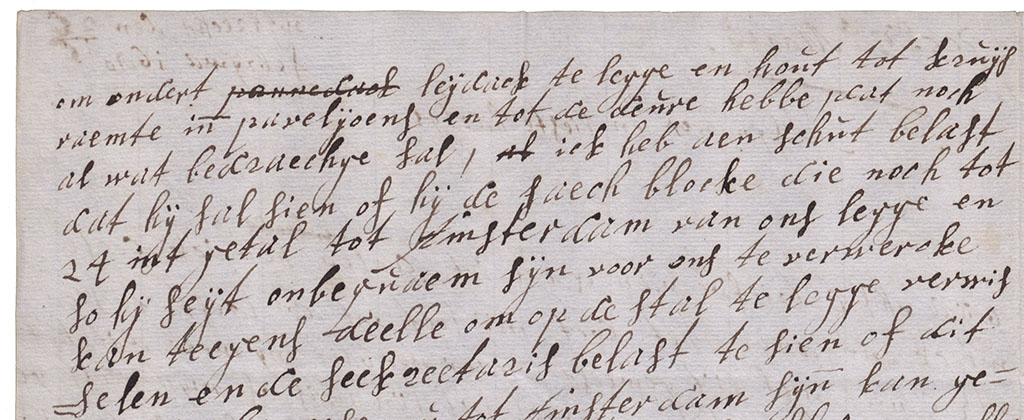 om ondert pannedack leijdack te legge en hout tot kruijs
raemte in paveljoens en tot de deure hebbe dat noch
al wat bedraechge sal, ick heb aen schut belast
dat hij sal sien of hij de saech blocke die noch tot
24 int getal tot Amsterdam van ons legge en
so hij seijt onbequaem sijn voor ons te verwercke
kan teegens deelle om op de stal te legge verwis
selen en de seeckreetaris belast te sien of dit
tot Amsterdam sijn kan ge=